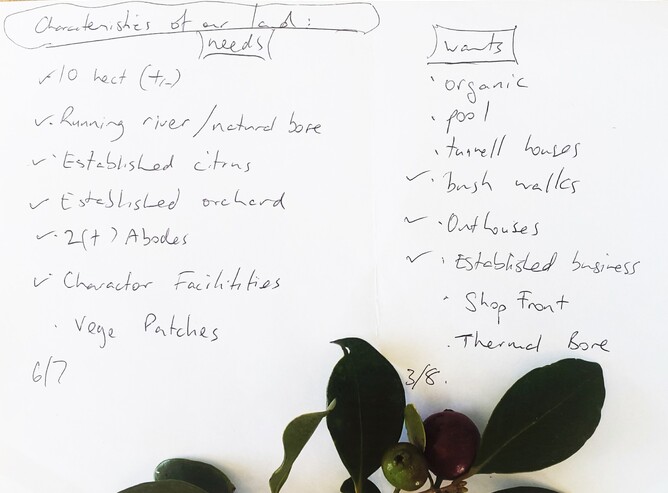 Characteristics of our land:
needs
✓ 10 hect (+,-)
✓ Running river / natural bore
✓ Established citrus
✓ Established orchard
✓ 2(+) Abodes
✓ Charactor Facilitities
· Vege Patches
6/7
wants
· organic
· pool
· tunnell houses
✓ · bush walks
✓ · Outhouses
✓ · Established business
· Shop Front
· Thermal Bore
3/8.